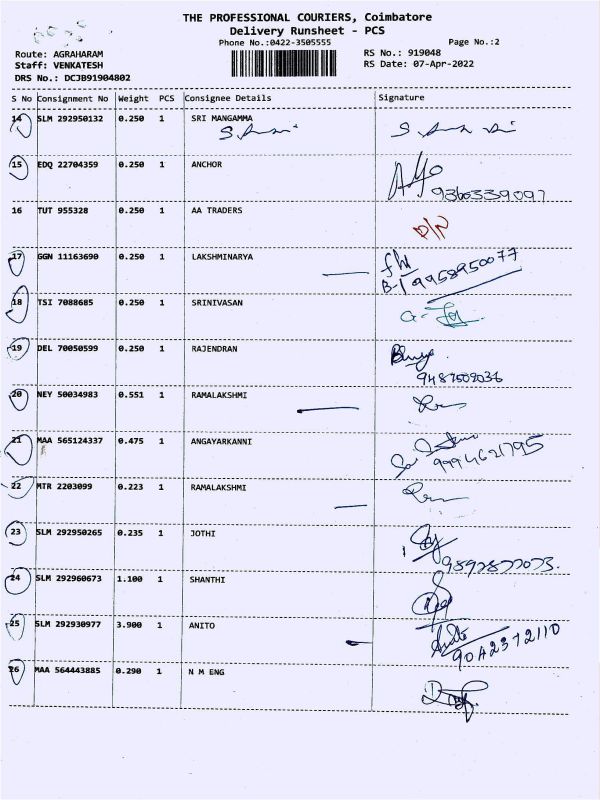 THE PROFESSIONAL COURIERS, Coimbatore
Delivery Runsheet - PCS
Phone No.:0422-3505555
Page No.:2
Route: AGRAHARAM
RS No.: 919048
Staff: VENKATESH
RS Date: 07-Apr-2022
DRS No.: DCJB91904802
S No Consignment No Weight PCS Consignee Details Signature
14 SLM 292950132 0.250 1 SRI MANGAMMA
15 EDQ 22704359 0.250 1 ANCHOR
9360339097
16 TUT 955328 0.250 1 AA TRADERS
D/N
17 GGN 11163690 0.250 1 LAKSHMINARYA
B-1 9958950077
18 TSI 7088685 0.250 1 SRINIVASAN
19 DEL 70050599 0.250 1 RAJENDRAN
20 NEY 50034983 0.551 1 RAMALAKSHMI
21 MAA 565124337 0.475 1 ANGAYARKANNI
9994621795
22 MTR 2203099 0.223 1 RAMALAKSHMI
23 SLM 292950265 0.235 1 JOTHI
24 SLM 292960673 1.100 1 SHANTHI
25 SLM 292930977 3.900 1 ANITO
26 MAA 564443885 0.290 1 N M ENG